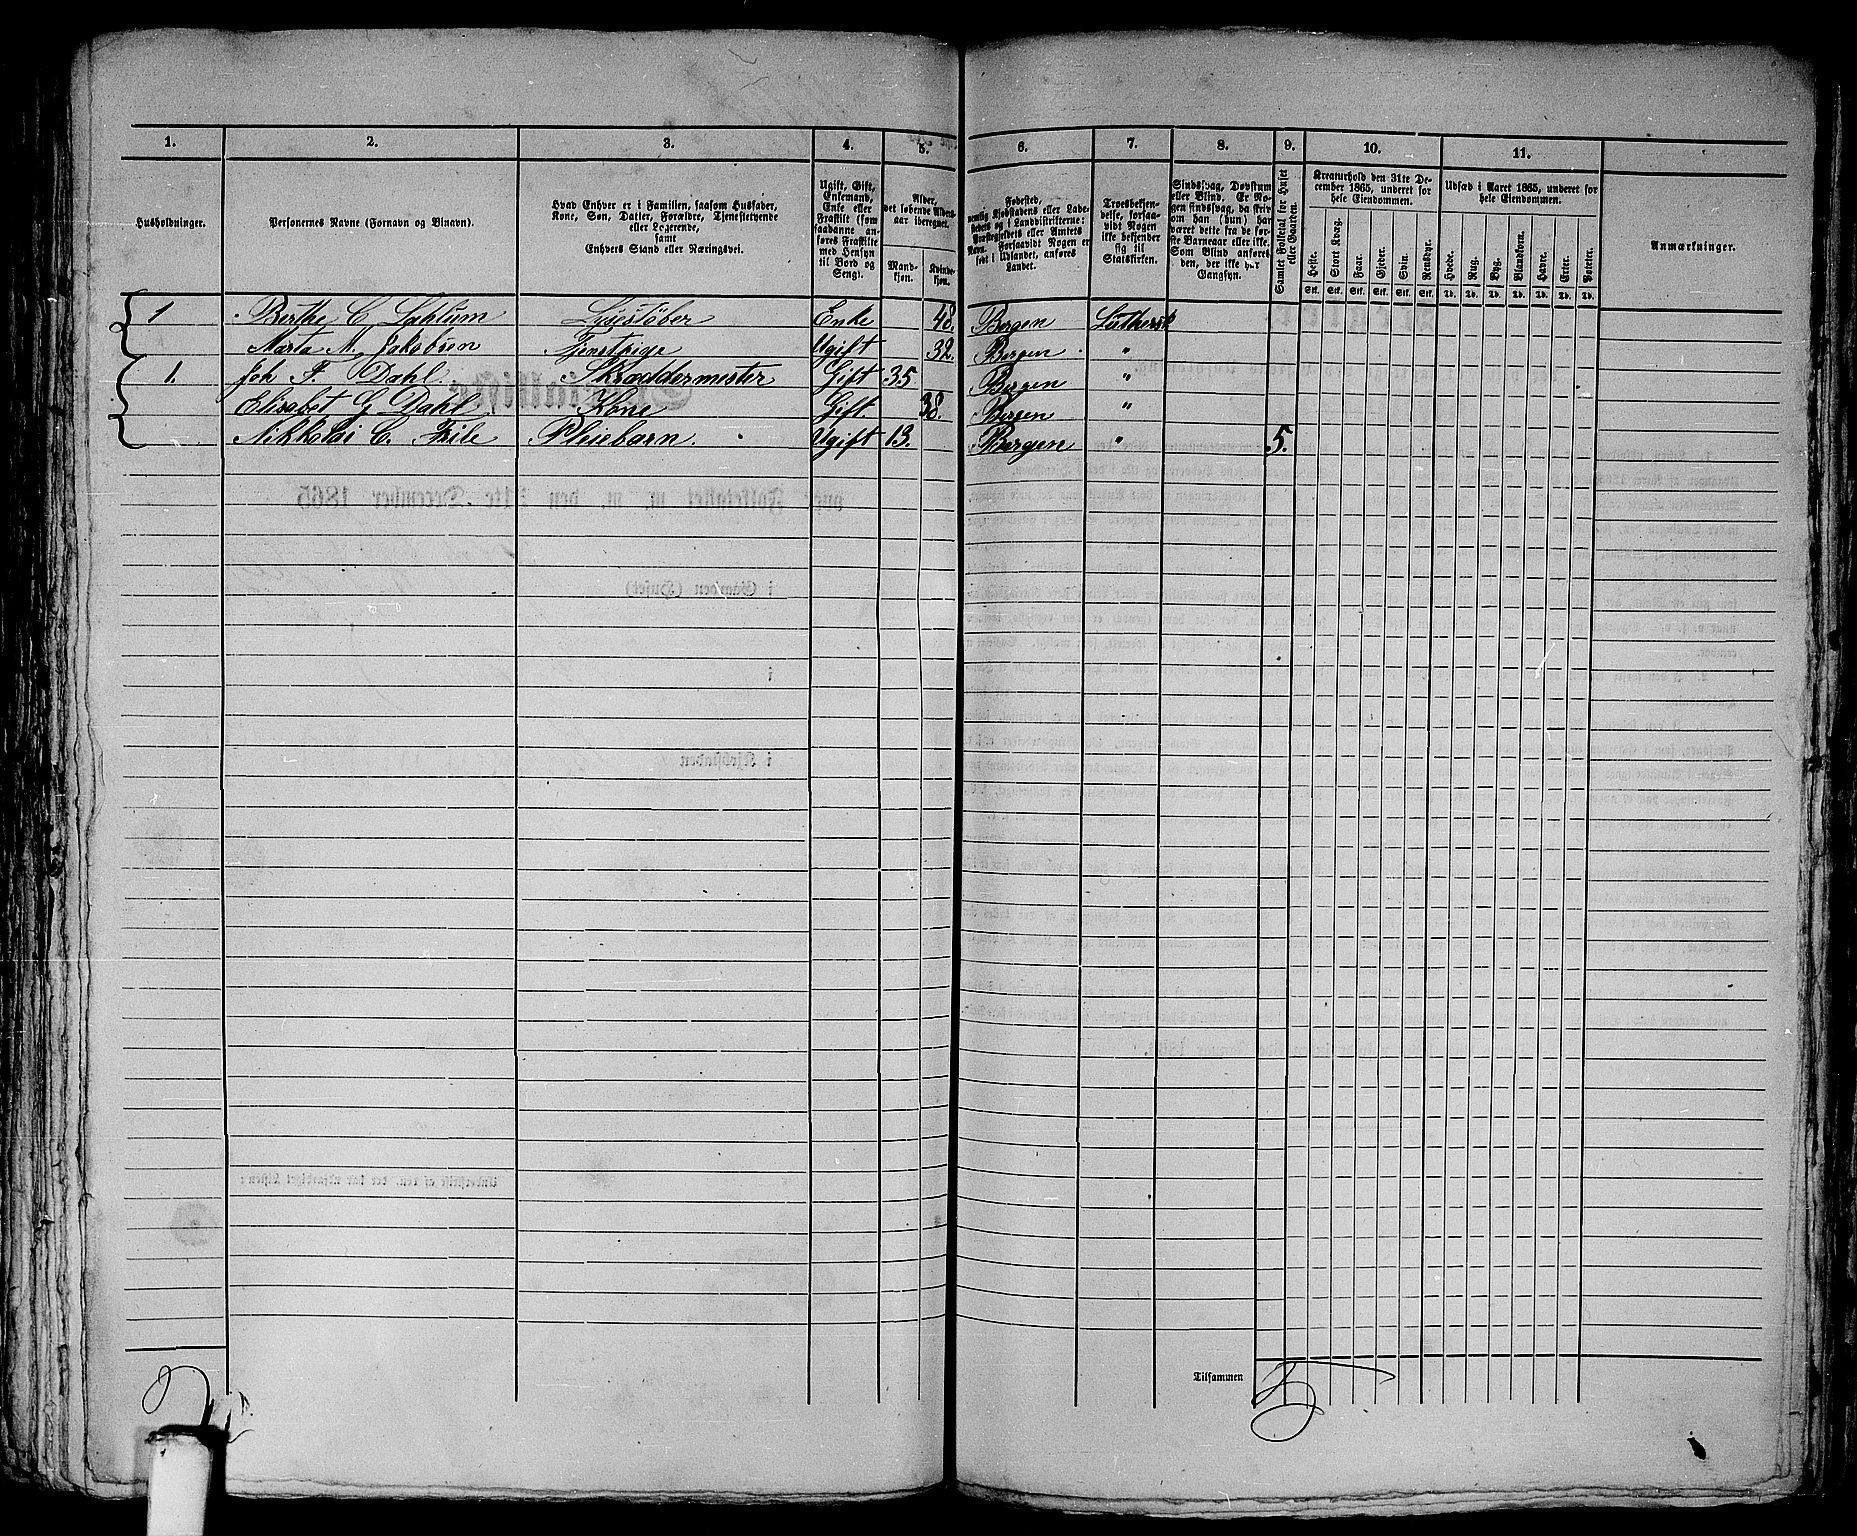 1. 2. 3. 4. 5. 6. 7. 8. 9. 10. 11.
Husholdninger.
Personernes Navne (Fornavn og Binavn).
Hvad Enhver er i Familien, saasom Husfader,
Kone, Søn, Datter, Forældre, Tjenestetyende
eller Logerende,
samt
Enhvers Stand eller Næringsvei.
Ugift, Gift,
Enkemand,
Enke eller
Fraskilt (som
saadanne an-
føres Fraskilte
med Hensyn
til Bord og
Seng).
Alder,
det løbende Alders-
aar iberegnet.
Mand-
kjøn.
Kvinde-
kjøn.
Fødested,
nemlig Kjøbstadens eller Lade-
stedets og i Landdistrikterne:
Præstegjeldets eller Amtets
Navn. Forsaavidt Nogen er
født i Udlandet, anføres
Landet.
Troesbekjen-
delse, forsaa-
vidt Nogen
ikke bekjender
sig til
Statskirken.
Sindssvag, Døvstum
eller Blind. Er No-
gen sindssvag, da skriv
om han (hun) har
været dette fra de før-
ste Barneaar eller ikke.
Som Blind anføres
den, der ikke har
Gangsyn.
Samlet Folketal for Huset
eller Gaarden.
Kreaturhold den 31te De-
cember 1865, underet for
hele Eiendommen.
Heste. Stort Kvæg. Faar. Gjeder. Svin. Rensdyr.
Stk. Stk. Stk. Stk. Stk. Stk.
Udsæd i Aaret 1865, underet for
hele Eiendommen.
Hvede. Rug. Byg. Blandkorn. Havre. Erter. Poteter.
Td. Td. Td. Td. Td. Td. Td.
Anmærkninger.
1 Berthe C Lahlum Lysstøber Enke 48. Bergen Luthersk
Marta M. Jakobsen Tjenstpige Ugift 32. Bergen "
1. Joh F. Dahl. Skræddermester Gift 35 Bergen "
Elisabet G Dahl Kone Gift. 38. Bergen "
Nikkolai C. Frile Pleiebarn. Ugift 13. Bergen " 5.
Tilsammen 5